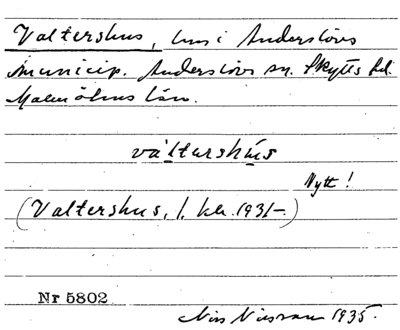 Valtershus, hus i Anderslövs
municip. Anderslövs sn. Skytts hd.
Malmöhus län.
váltarshús
Nytt!
(Valtershus, l. kh. 1931–)
Nr 5802
Nils Nilsson 1935.